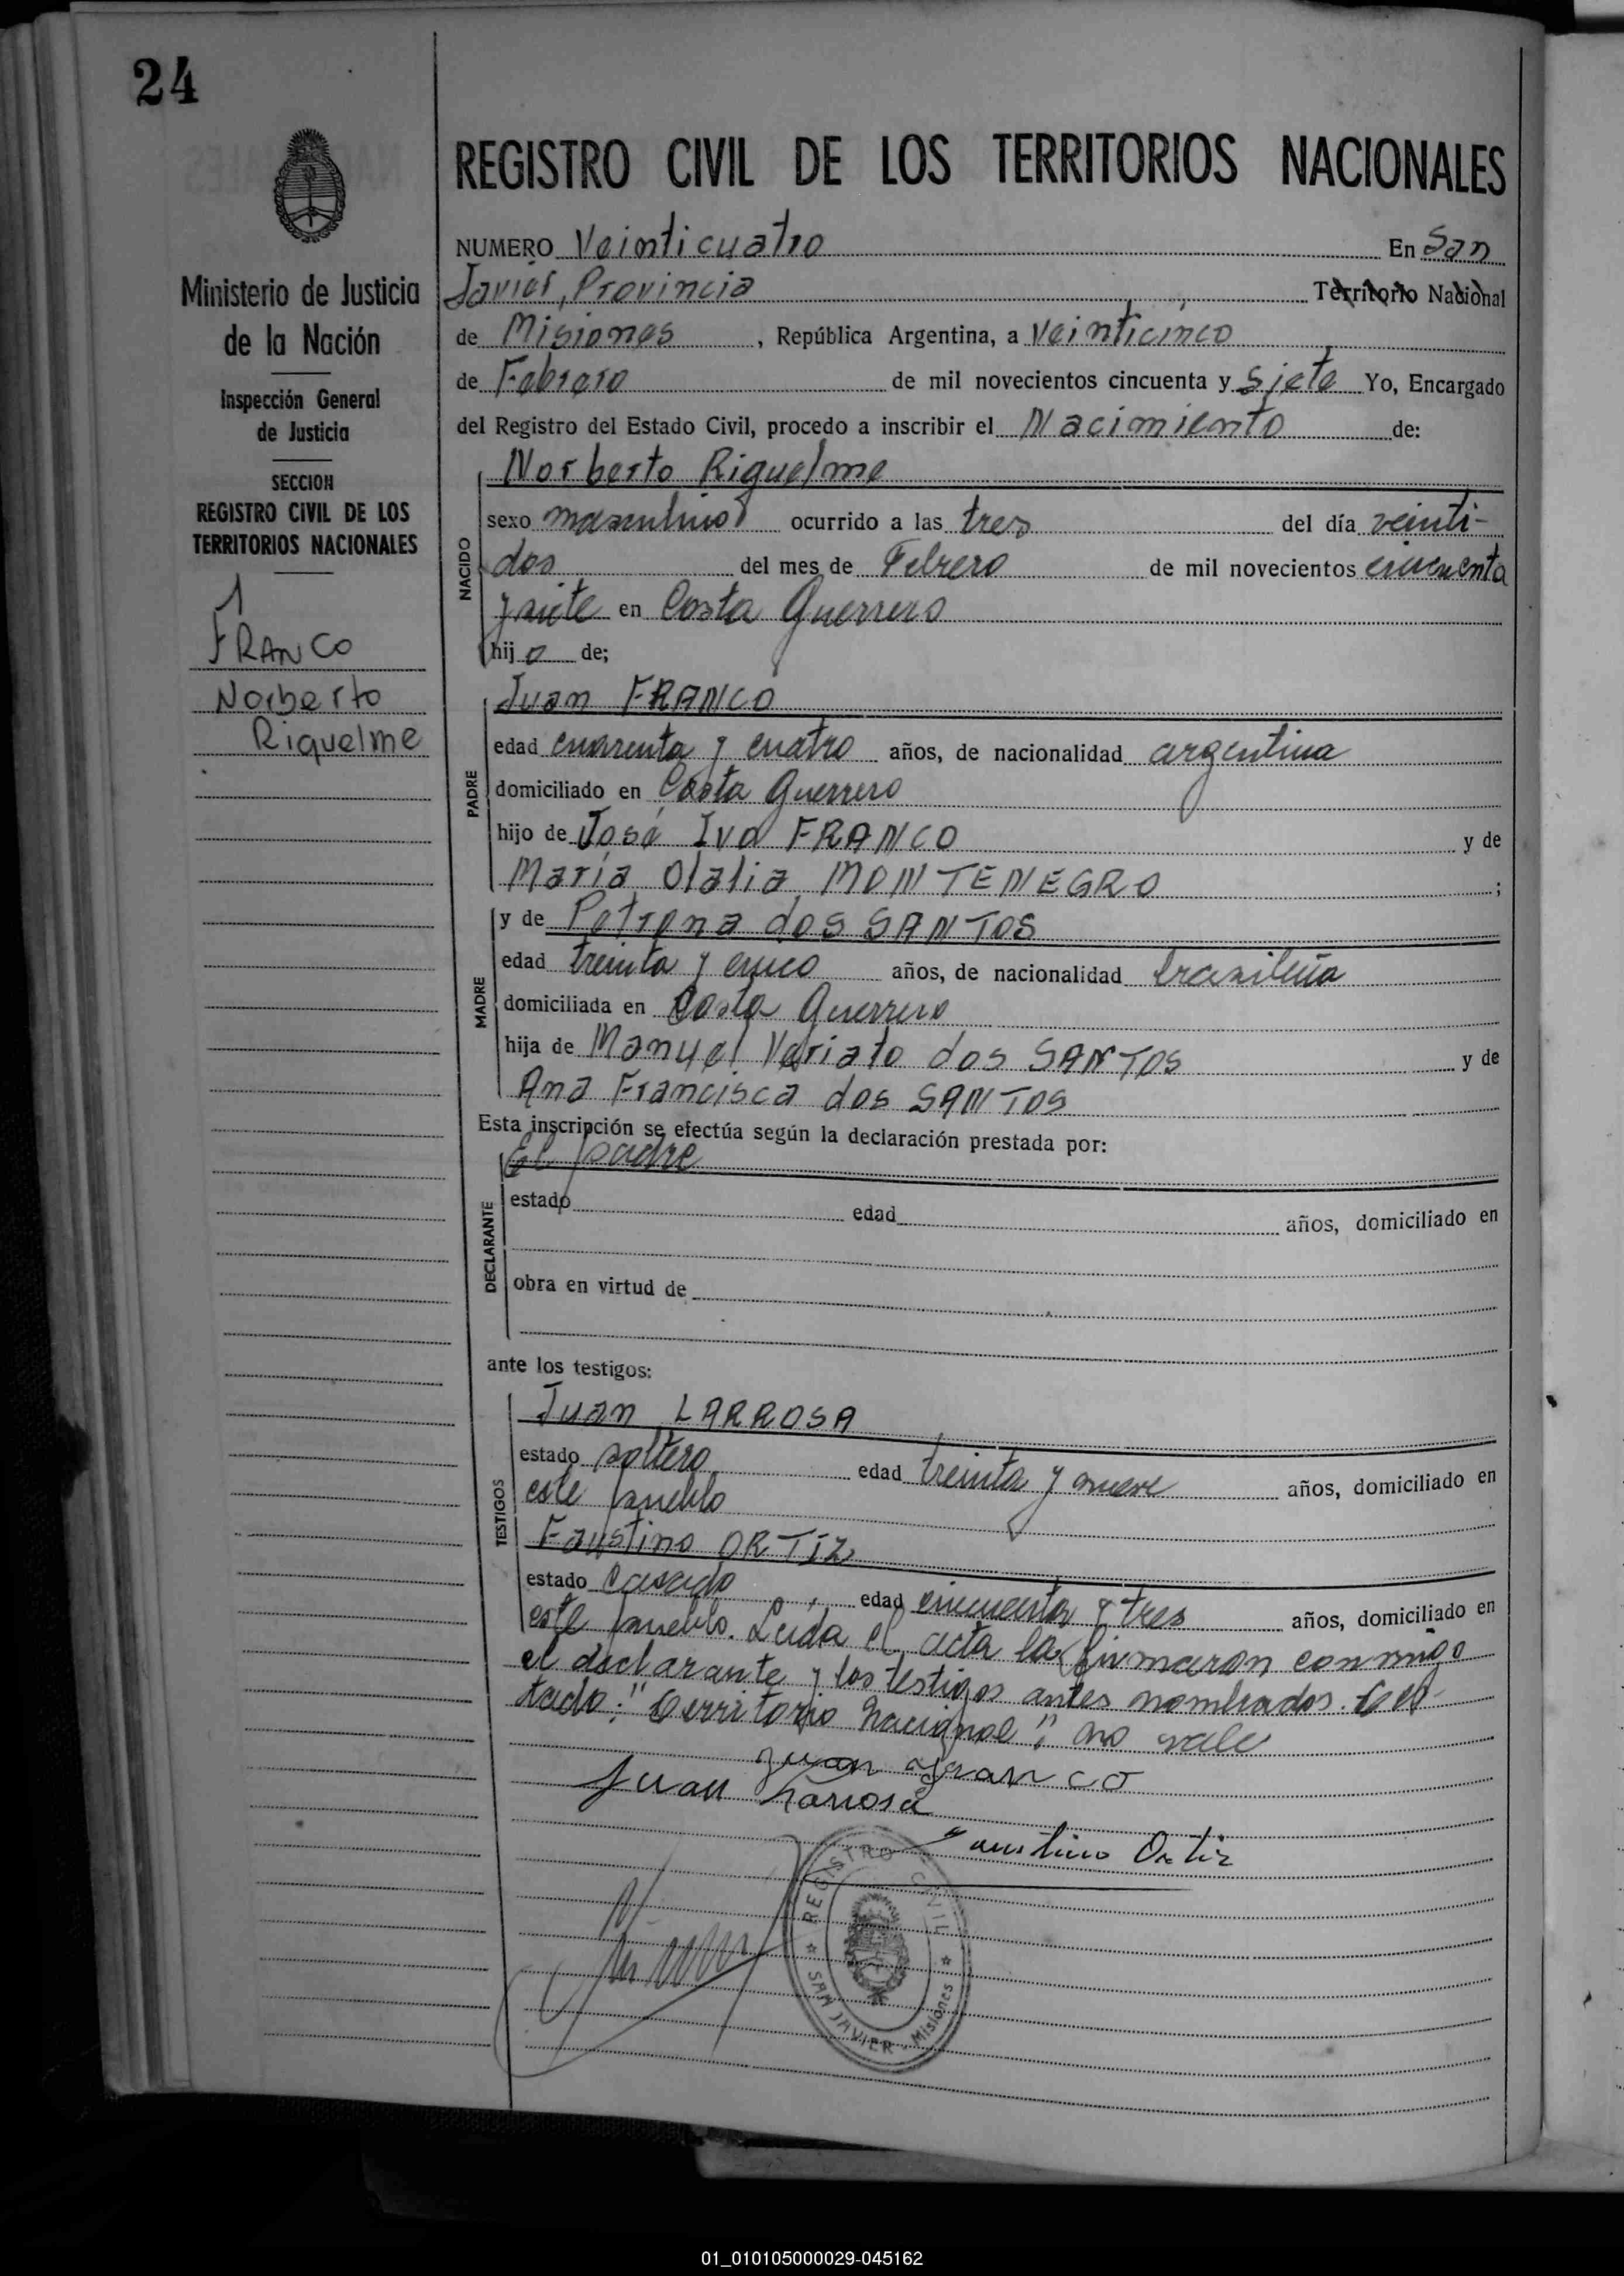 24
REGISTRO CIVIL DE LOS TERRITORIOS NACIONALES
Ministerio de Justicia
de la Nación
Inspección General
de Justicia
SECCION
REGISTRO CIVIL DE LOS
TERRITORIOS NACIONALES
1
FRANCO
Norberto
Riquelme
NUMERO Veinticuatro En San
Javier, Provincia Territorio Nacional
de Misiones, República Argentina, a Veinticinco
de Febrero de mil novecientos cincuenta y Siete Yo, Encargado
del Registro del Estado Civil, procedo a inscribir el Nacimiento de:
NACIDO
Norberto Riquelme
sexo masculino ocurrido a las tres del día veinti-
dos del mes de Febrero de mil novecientos cincuenta
y siete en Costa Guerrero
hijo de;
PADRE
Juan FRANCO
edad cuarenta y cuatro años, de nacionalidad argentina
domiciliado en Costa Guerrero
hijo de José Ivo FRANCO y de
María Olalia MONTENEGRO ;
MADRE
y de Petrona dos SANTOS
edad treinta y cinco años, de nacionalidad brasileña
domiciliada en Costa Guerrero
hija de Manuel Variato dos SANTOS y de
Ana Francisca dos SANTOS
Esta inscripción se efectúa según la declaración prestada por:
DECLARANTE
El padre
estado edad años, domiciliado en
obra en virtud de
ante los testigos:
TESTIGOS
Juan LARROSA
estado soltero edad treinta y nueve años, domiciliado en
este pueblo
Faustino ORTIZ
estado casado edad cincuenta y tres años, domiciliado en
este pueblo. Leída el acta la firmaron conmigo
el declarante y los testigos antes nombrados. Tes-
tado: "Territorio Nacional"; no vale
Juan Franco
Juan Larrosa
Faustino Ortiz
REGISTRO CIVIL
SAN JAVIER - Misiones
01_010105000029-045162